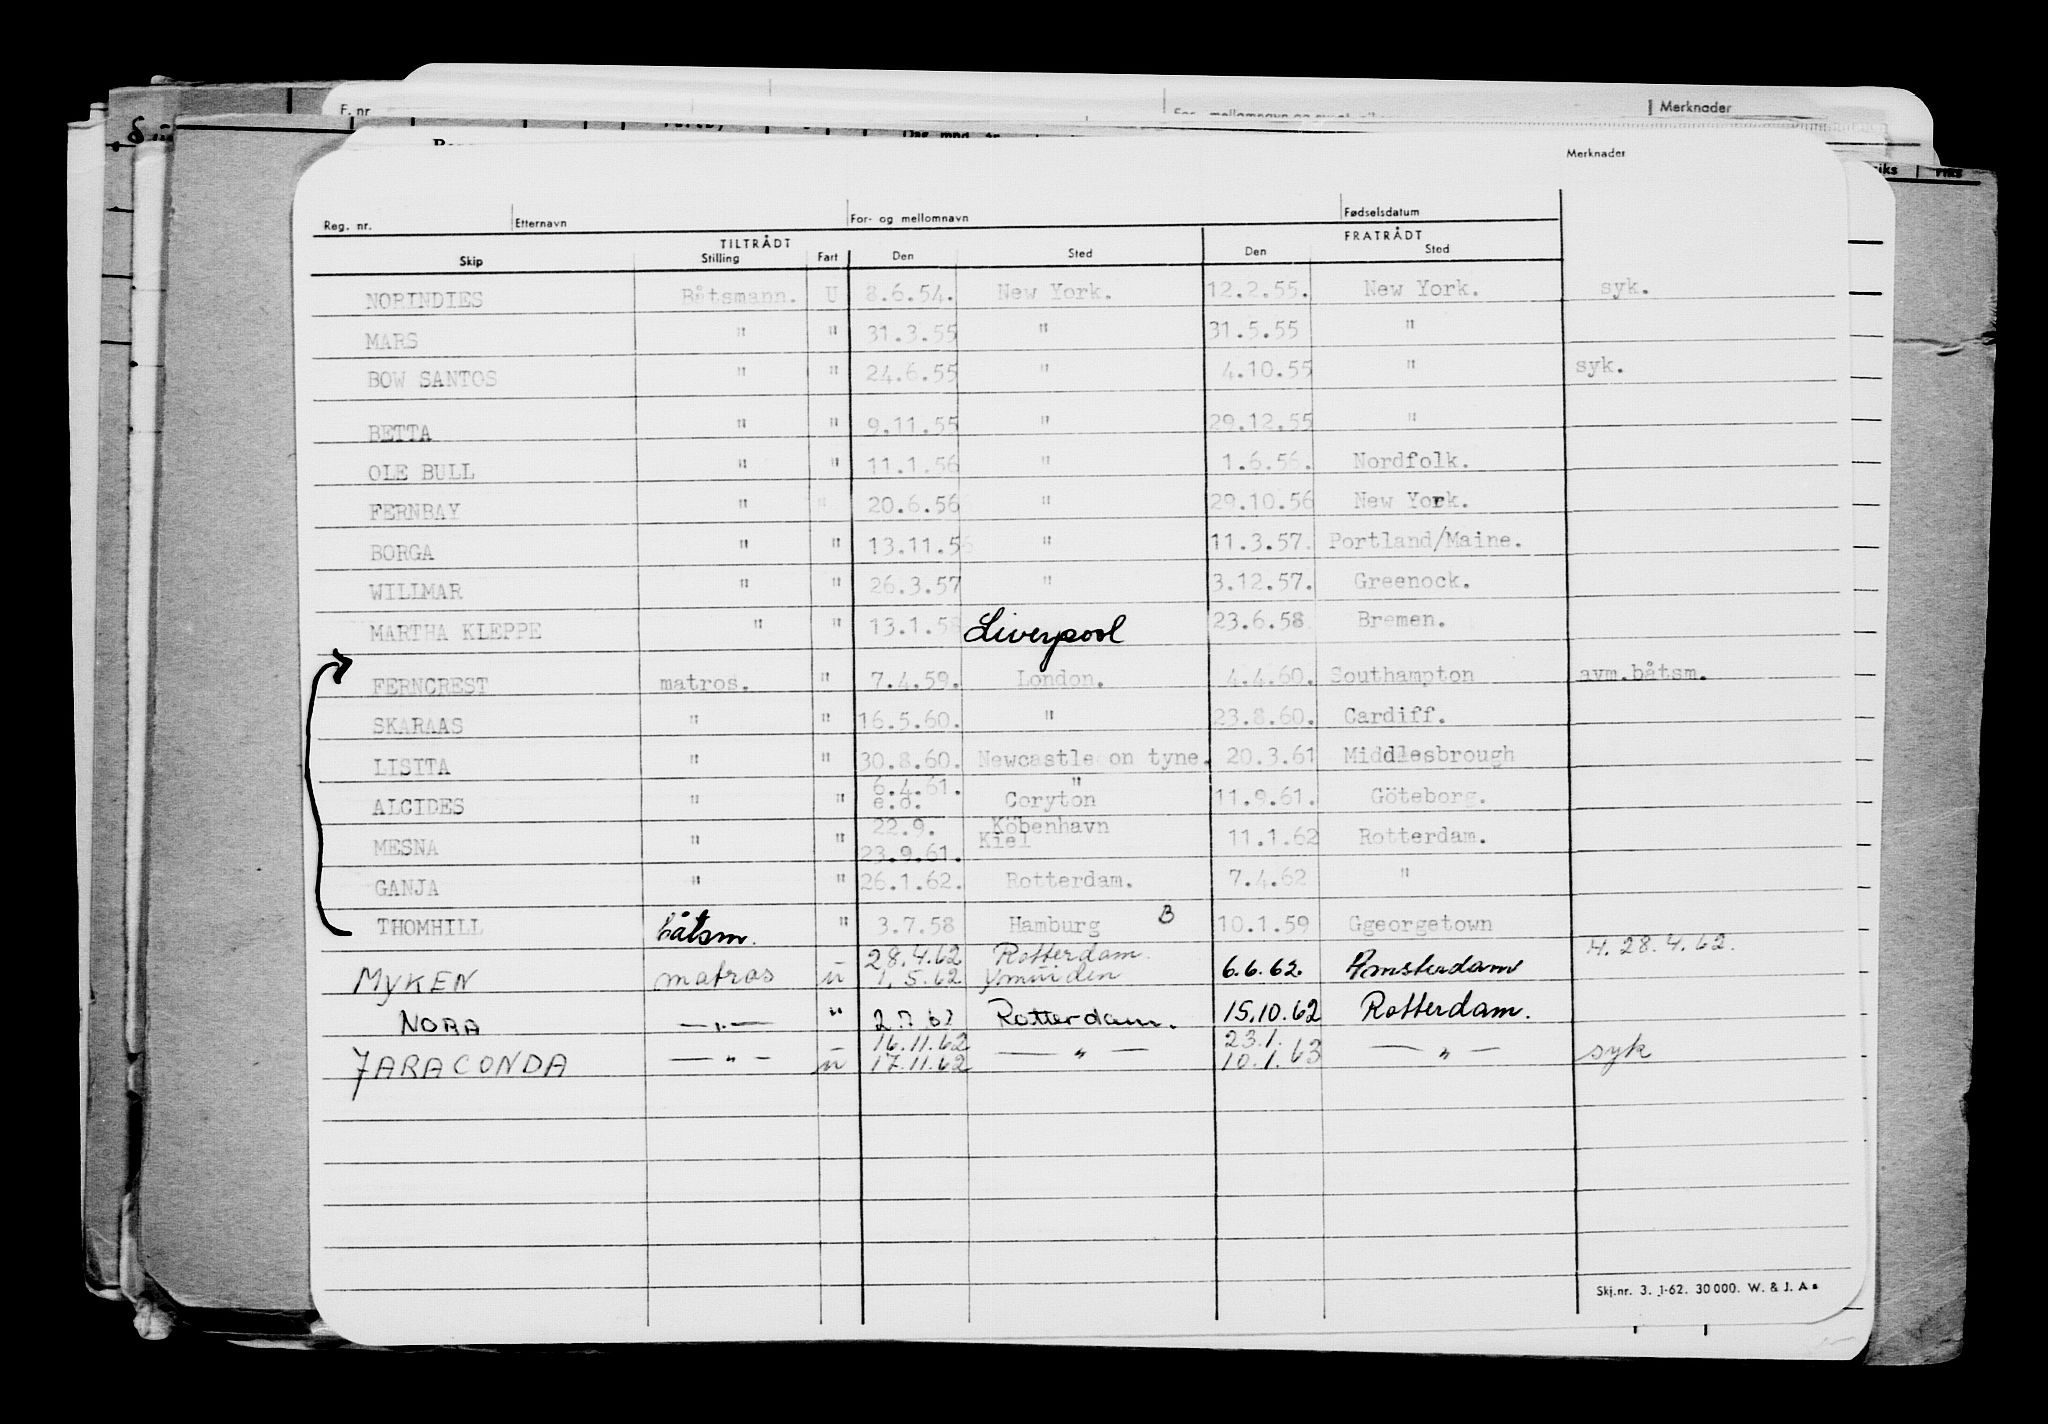 F. nr
Merknader
Merknader
Reg. nr. Etternavn For- og mellomnavn Fødselsdatum
TILTRÅDT FRATRÅDT
Skip Stilling Fart Den Sted Den Sted
NORINDIES Båtsmann. U 8.6.54. New York. 12.2.55. New York. syk.
MARS " " 31.3.55 " 31.5.55 "
BOW SANTOS " " 24.6.55 " 4.10.55 " syk.
BETTA " " 9.11.55 " 29.12.55 "
OLE BULL " " 11.1.56 " 1.6.56. Nordfolk.
FERNBAY " " 20.6.56 " 29.10.56 New York.
BORGA " " 13.11.56 " 11.3.57. Portland/Maine.
WILLMAR " " 26.3.57 " 3.12.57. Greenock.
MARTHA KLEPPE " " 13.1.58 Liverpool 23.6.58 Bremen.
FERNCREST matros. " 7.4.59. London. 4.4.60. Southampton avm.båtsm.
SKARAAS " " 16.5.60. " 23.8.60. Cardiff.
LISITA " " 30.8.60. Newcastle on tyne. 20.3.61 Middlesbrough
6.4.61. "
ALCIDES " " e.d. Coryton 11.9.61. Göteborg.
22.9. Köbenhavn
MESNA " " 23.9.61. Kiel 11.1.62 Rotterdam.
GANJA " " 26.1.62. Rotterdam. 7.4.62 "
THOMHILL båtsm. " 3.7.58 Hamburg B 10.1.59 Ggeorgetown
28.4.62 Rotterdam. H. 28.4.62.
MYKEN matros u 1.5.62 Ymuiden 6.6.62. Amsterdam
NORA —"— " Rotterdam. 15.10.62 Rotterdam.
16.11.62 23.1.
JARACONDA —"— u 17.11.62 —"— 10.1.63 —"— syk
Skj.nr. 3. 1-62. 30000. W. & J. A s